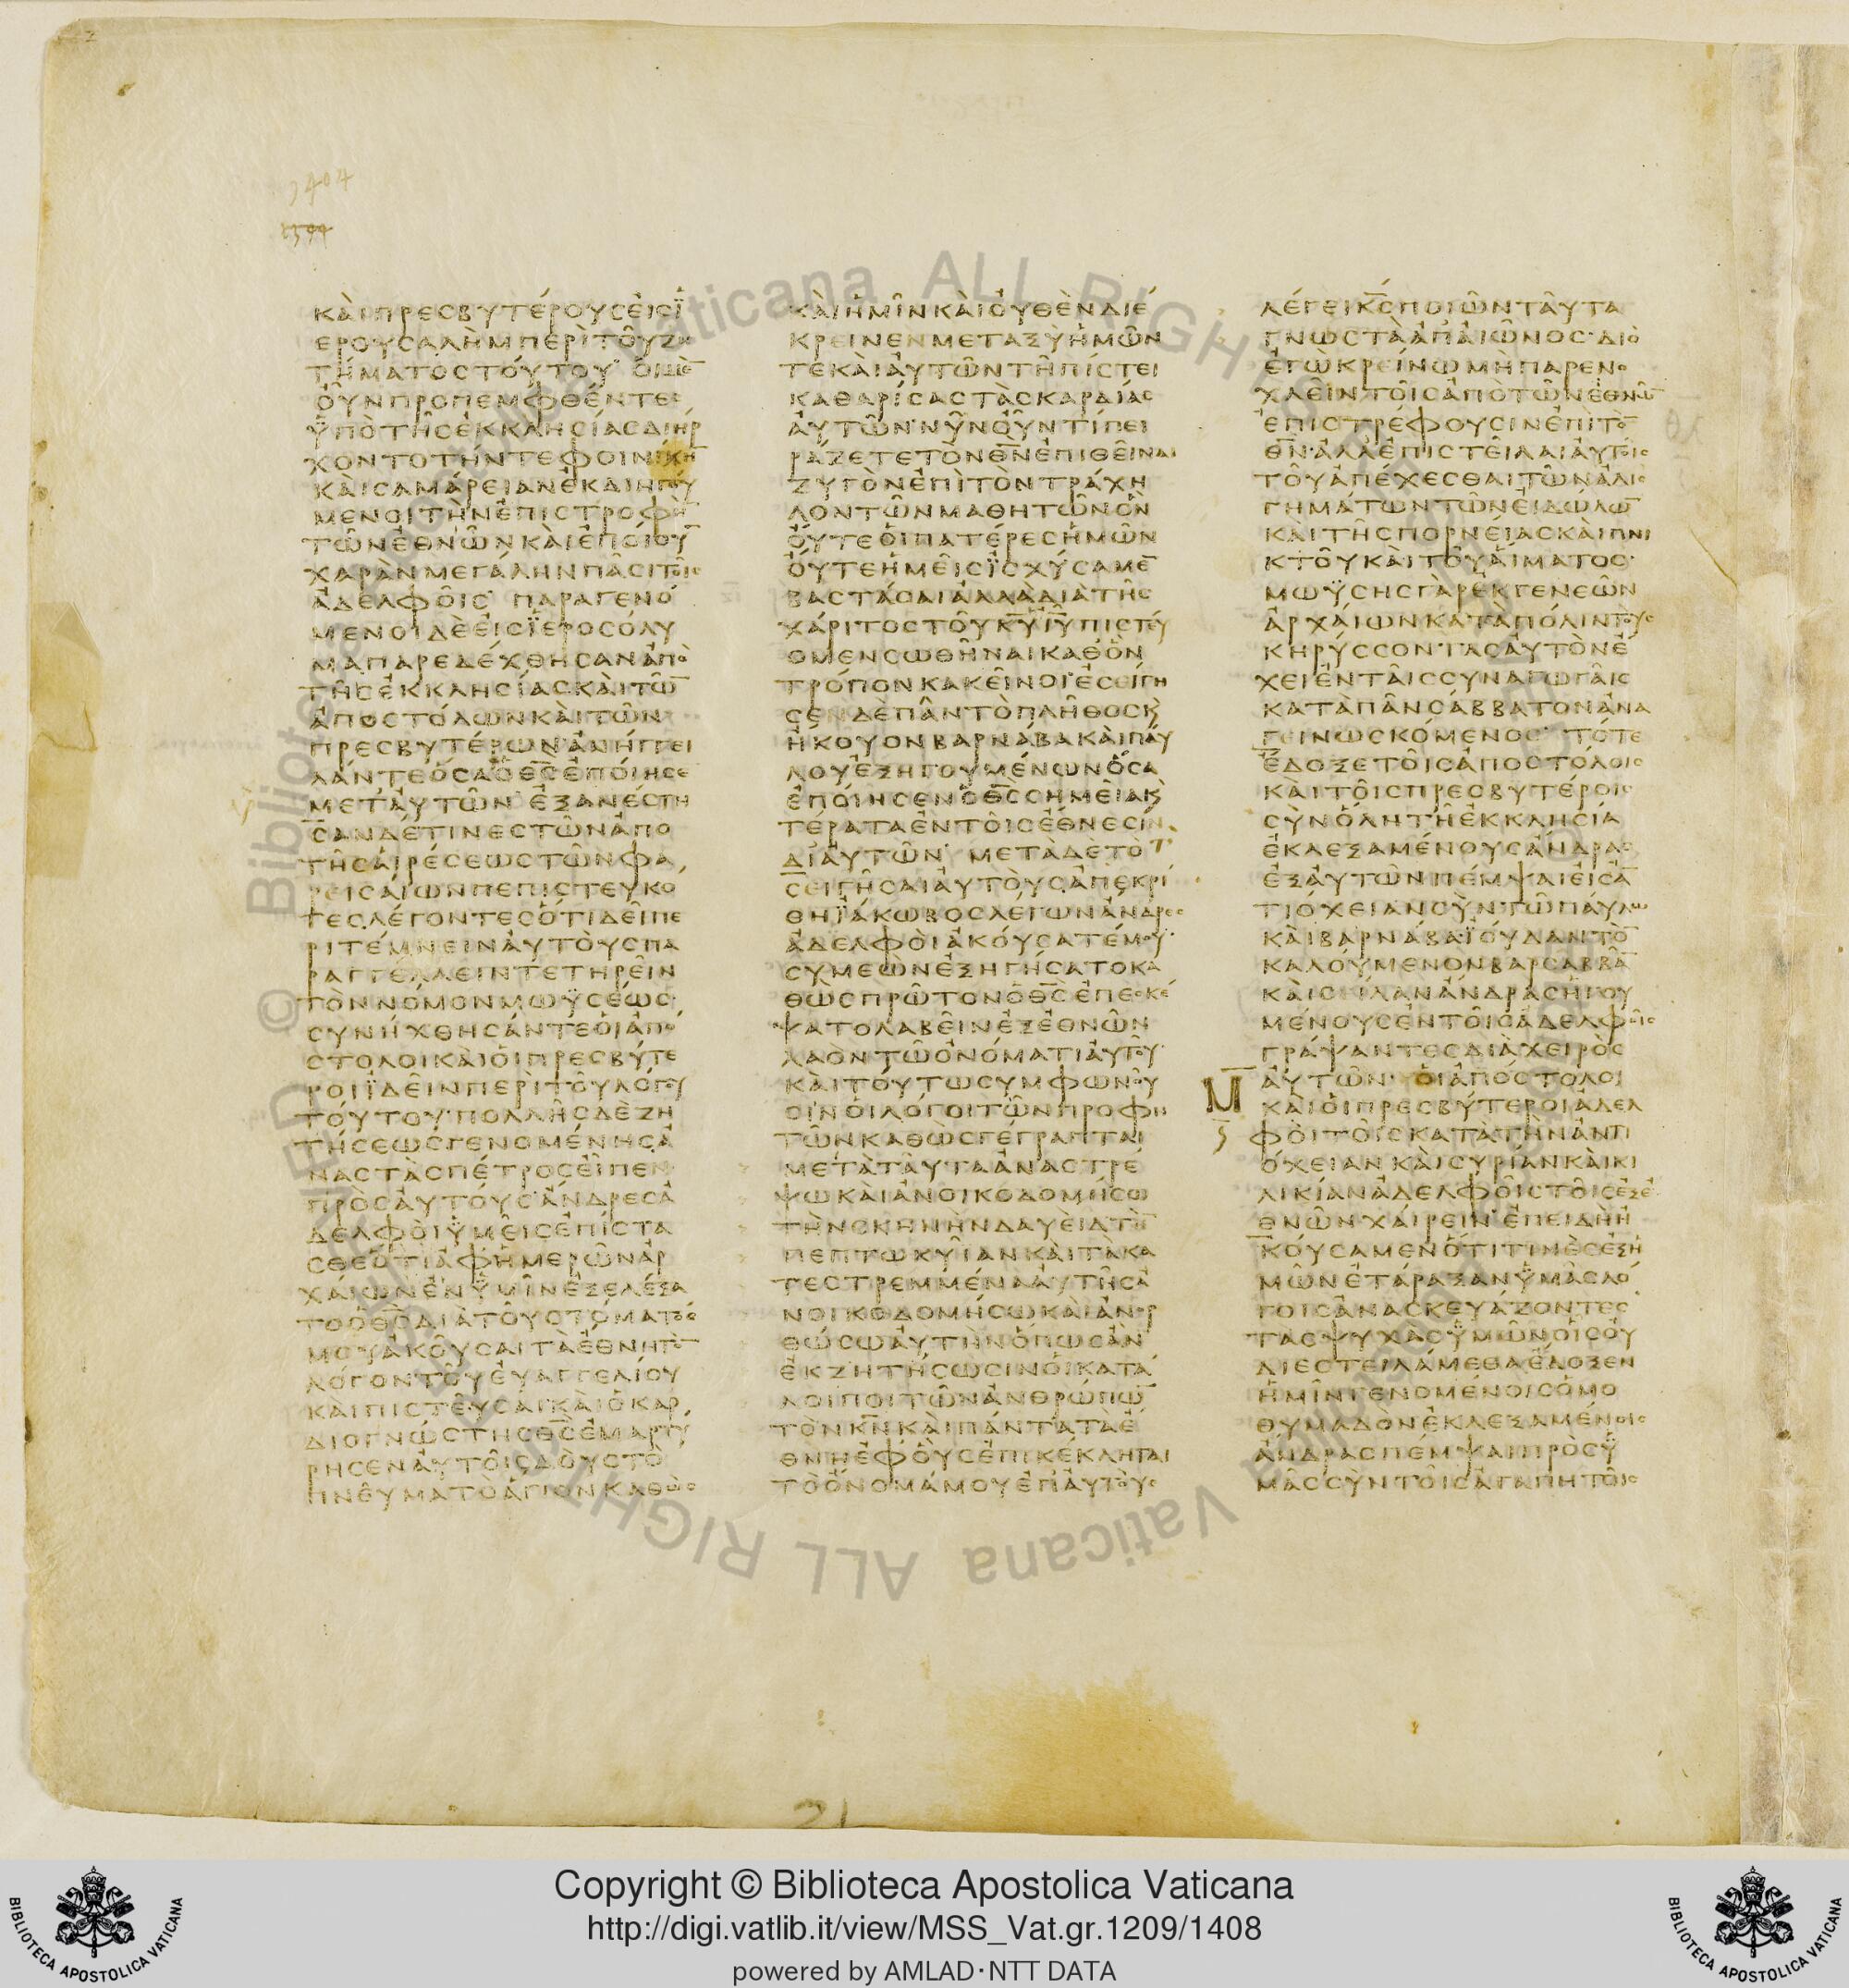 1404
ΚΑΙΠΡΕΣΒΥΤΕΡΟΥΣΕΙΣΪ
ΕΡΟΥΣΑΛΗΜΠΕΡΙΤΟΥΖΗ
ΤΗΜΑΤΟΣΤΟΥΤΟΥ ΟΙΜΕ̅
ΟΥΝΠΡΟΠΕΜΦΘΕΝΤΕΣ
ΫΠΟΤΗΣΕΚΚΛΗΣΙΑΣΔΙΗΡ
ΧΟΝΤΟΤΗΝΤΕΦΟΙΝΙΚΗ
ΚΑΙΣΑΜΑΡΕΙΑΝΕΚΔΙΗΓΟΥ
ΜΕΝΟΙΤΗΝΕΠΙΣΤΡΟΦΗ̅
ΤΩΝΕΘΝΩΝΚΑΙΕΠΟΙΟΥ̅
ΧΑΡΑΝΜΕΓΑΛΗΝΠΑΣΙΤΟΙΣ
ΑΔΕΛΦΟΙΣ ΠΑΡΑΓΕΝΟ
ΜΕΝΟΙΔΕΕΙΣΪΕΡΟΣΟΛΥ
ΜΑΠΑΡΕΔΕΧΘΗΣΑΝΑΠΟ
ΤΗΣΕΚΚΛΗΣΙΑΣΚΑΙΤΩ̅
ΑΠΟΣΤΟΛΩΝΚΑΙΤΩΝ
ΠΡΕΣΒΥΤΕΡΩΝΑΝΗΓΓΕΙ
ΛΑΝΤΕΟΣΑΟΘ̅Σ̅ΕΠΟΙΗΣΕ
ΜΕΤΑΥΤΩΝ ΕΞΑΝΕΣΤΗ
ΣΑΝΔΕΤΙΝΕΣΤΩΝΑΠΟ
ΤΗΣΑΙΡΕΣΕΩΣΤΩΝΦΑ
ΡΕΙΣΑΙΩΝΠΕΠΙΣΤΕΥΚΟ
ΤΕΣΛΕΓΟΝΤΕΣΟΤΙΔΕΙΠΕ
ΡΙΤΕΜΝΕΙΝΑΥΤΟΥΣΠΑ
ΡΑΓΓΕΛΛΕΙΝΤΕΤΗΡΕΙΝ
ΤΟΝΝΟΜΟΝΜΩΫΣΕΩΣ
ΣΥΝΗΧΘΗΣΑΝΤΕΟΙΑΠΟ
ΣΤΟΛΟΙΚΑΙΟΙΠΡΕΣΒΥΤΕ
ΡΟΙΪΔΕΙΝΠΕΡΙΤΟΥΛΟΓΟΥ
ΤΟΥΤΟΥ ΠΟΛΛΗΣΔΕΖΗ
ΤΗΣΕΩΣΓΕΝΟΜΕΝΗΣΑ
ΝΑΣΤΑΣΠΕΤΡΟΣΕΙΠΕΝ
ΠΡΟΣΑΥΤΟΥΣ ΑΝΔΡΕΣΑ
ΔΕΛΦΟΙΫΜΕΙΣΕΠΙΣΤΑ
ΣΘΕΟΤΙΑΦΗΜΕΡΩΝΑΡ
ΧΑΙΩΝΕΝΫΜΙΝΕΞΕΛΕΞΑ
ΤΟΟΘ̅Σ̅ΔΙΑΤΟΥΣΤΟΜΑΤΟΣ
ΜΟΥΑΚΟΥΣΑΙΤΑΕΘΝΗΤΟ̅
ΛΟΓΟΝΤΟΥΕΥΑΓΓΕΛΙΟΥ
ΚΑΙΠΙΣΤΕΥΣΑΙΚΑΙΟΚΑΡ
ΔΙΟΓΝΩΣΤΗΣΘ̅Σ̅ΕΜΑΡΤΥ
ΡΗΣΕΝΑΥΤΟΙΣΔΟΥΣΤΟ
ΠΝΕΥΜΑΤΟΑΓΙΟΝΚΑΘΩΣ
ΚΑΙΗΜΙΝΚΑΙΟΥΘΕΝΔΙΕ
ΚΡΕΙΝΕΝΜΕΤΑΞΥΗΜΩΝ
ΤΕΚΑΙΑΥΤΩΝΤΗΠΙΣΤΕΙ
ΚΑΘΑΡΙΣΑΣΤΑΣΚΑΡΔΙΑΣ
ΑΥΤΩΝ ΝΥΝΟΥΝΤΙΠΕΙ
ΡΑΖΕΤΕΤΟΝΘ̅Ν̅ΕΠΙΘΕΙΝΑΙ
ΖΥΓΟΝΕΠΙΤΟΝΤΡΑΧΗ
ΛΟΝΤΩΝΜΑΘΗΤΩΝΟΝ
ΟΥΤΕΟΙΠΑΤΕΡΕΣΗΜΩΝ
ΟΥΤΕΗΜΕΙΣΪΣΧΥΣΑΜΕ̅
ΒΑΣΤΑΣΑΙΑΛΛΑΔΙΑΤΗΣ
ΧΑΡΙΤΟΣΤΟΥΚ̅Υ̅Ι̅Υ̅ΠΙΣΤΕΥ
ΟΜΕΝΣΩΘΗΝΑΙΚΑΘΟΝ
ΤΡΟΠΟΝΚΑΚΕΙΝΟΙΕΣΕΙΓΗ
ΣΕΝΔΕΠΑΝΤΟΠΛΗΘΟΣΚ
ΗΚΟΥΟΝΒΑΡΝΑΒΑΚΑΙΠΑΥ
ΛΟΥΕΞΗΓΟΥΜΕΝΩΝΟΣΑ
ΕΠΟΙΗΣΕΝΟΘ̅Σ̅ΣΗΜΕΙΑΚ
ΤΕΡΑΤΑΕΝΤΟΙΣΕΘΝΕΣΙΝ
ΔΙΑΥΤΩΝ ΜΕΤΑΔΕΤΟ
ΣΕΙΓΗΣΑΙΑΥΤΟΥΣΑΠΕΚΡΙ
ΘΗΪΑΚΩΒΟΣΛΕΓΩΝΑΝΔΡΕΣ
ΑΔΕΛΦΟΙΑΚΟΥΣΑΤΕΜΟΥ
ΣΥΜΕΩΝΕΞΗΓΗΣΑΤΟΚΑ
ΘΩΣΠΡΩΤΟΝΟΘ̅Σ̅ΕΠΕΣΚΕ
ΨΑΤΟΛΑΒΕΙΝΕΞΕΘΝΩΝ
ΛΑΟΝΤΩΟΝΟΜΑΤΙΑΥΤΟΥ
ΚΑΙΤΟΥΤΩΣΥΜΦΩΝΟΥ
ΣΙΝΟΙΛΟΓΟΙΤΩΝΠΡΟΦΗ
ΤΩΝΚΑΘΩΣΓΕΓΡΑΠΤΑΙ
ΜΕΤΑΤΑΥΤΑΑΝΑΣΤΡΕ
ΨΩΚΑΙΑΝΟΙΚΟΔΟΜΗΣΩ
ΤΗΝΣΚΗΝΗΝΔΑΥΕΙΔΤΗ̅
ΠΕΠΤΩΚΥΙΑΝΚΑΙΤΑΚΑ
ΤΕΣΤΡΕΜΜΕΝΑΑΥΤΗΣΑ
ΝΟΙΚΟΔΟΜΗΣΩΚΑΙΑΝΟΡ
ΘΩΣΩΑΥΤΗΝΟΠΩΣΑΝ
ΕΚΖΗΤΗΣΩΣΙΝΟΙΚΑΤΑ
ΛΟΙΠΟΙΤΩΝΑΝΘΡΩΠΩ̅
ΤΟΝΚ̅Ν̅ΚΑΙΠΑΝΤΑΤΑΕ
ΘΝΗΕΦΟΥΣΕΠΙΚΕΚΛΗΤΑΙ
ΤΟΟΝΟΜΑΜΟΥΕΠΑΥΤΟΥΣ
ΛΕΓΕΙΚ̅Σ̅ΠΟΙΩΝΤΑΥΤΑ
ΓΝΩΣΤΑΑΠΑΙΩΝΟΣ ΔΙΟ
ΕΓΩΚΡΕΙΝΩΜΗΠΑΡΕΝΟ
ΧΛΕΙΝΤΟΙΣΑΠΟΤΩΝΕΘΝΩ̅
ΕΠΙΣΤΡΕΦΟΥΣΙΝΕΠΙΤΟ̅
Θ̅Ν̅ ΑΛΛΕΠΙΣΤΕΙΛΑΙΑΥΤΟΙΣ
ΤΟΥΑΠΕΧΕΣΘΑΙΤΩΝΑΛΙΣ
ΓΗΜΑΤΩΝΤΩΝΕΙΔΩΛΩ̅
ΚΑΙΤΗΣΠΟΡΝΕΙΑΣΚΑΙΠΝΙ
ΚΤΟΥΚΑΙΤΟΥΑΙΜΑΤΟΣ
ΜΩΫΣΗΣΓΑΡΕΚΓΕΝΕΩΝ
ΑΡΧΑΙΩΝΚΑΤΑΠΟΛΙΝΤΟΥΣ
ΚΗΡΥΣΣΟΝΤΑΣΑΥΤΟΝΕ
ΧΕΙΕΝΤΑΙΣΣΥΝΑΓΩΓΑΙΣ
ΚΑΤΑΠΑΝΣΑΒΒΑΤΟΝΑΝΑ
ΓΕΙΝΩΣΚΟΜΕΝΟΣ ΤΟΤΕ
ΕΔΟΞΕΤΟΙΣΑΠΟΣΤΟΛΟΙΣ
ΚΑΙΤΟΙΣΠΡΕΣΒΥΤΕΡΟΙΣ
ΣΥΝΟΛΗΤΗΕΚΚΛΗΣΙΑ
ΕΚΛΕΞΑΜΕΝΟΥΣΑΝΔΡΑΣ
ΕΞΑΥΤΩΝΠΕΜΨΑΙΕΙΣΑ̅
ΤΙΟΧΕΙΑΝΣΥΝΤΩΠΑΥΛΩ
ΚΑΙΒΑΡΝΑΒΑΪΟΥΔΑΝΤΟ̅
ΚΑΛΟΥΜΕΝΟΝΒΑΡΣΑΒΒΑ̅
ΚΑΙΣΕΙΛΑΝΑΝΔΡΑΣΗΓΟΥ
ΜΕΝΟΥΣΕΝΤΟΙΣΑΔΕΛΦΟΙΣ
ΓΡΑΨΑΝΤΕΣΔΙΑΧΕΙΡΟΣ
ΑΥΤΩΝ ΟΙΑΠΟΣΤΟΛΟΙ
ΚΑΙΟΙΠΡΕΣΒΥΤΕΡΟΙΑΔΕΛ
ΦΟΙΤΟΙΣΚΑΤΑΤΗΝΑΝΤΙ
ΟΧΕΙΑΝΚΑΙΣΥΡΙΑΝΚΑΙΚΙ
ΛΙΚΙΑΝΑΔΕΛΦΟΙΣΤΟΙΣΕΞΕ
ΘΝΩΝΧΑΙΡΕΙΝ ΕΠΕΙΔΗΗ
ΚΟΥΣΑΜΕΝΟΤΙΤΙΝΕΣΕΞΗ
ΜΩΝΕΤΑΡΑΞΑΝΫΜΑΣΛΟ
ΓΟΙΣΑΝΑΣΚΕΥΑΖΟΝΤΕΣ
ΤΑΣΨΥΧΑΣΫΜΩΝΟΙΣΟΥ
ΔΙΕΣΤΕΙΛΑΜΕΘΑΕΔΟΞΕΝ
ΗΜΙΝΓΕΝΟΜΕΝΟΙΣΟΜΟ
ΘΥΜΑΔΟΝΕΚΛΕΞΑΜΕΝΟΙΣ
ΑΝΔΡΑΣΠΕΜΨΑΙΠΡΟΣΫ
ΜΑΣΣΥΝΤΟΙΣΑΓΑΠΗΤΟΙΣ
21
© Biblioteca Apostolica Vaticana ALL RIGHTS RESERVED
Copyright © Biblioteca Apostolica Vaticana
http://digi.vatlib.it/view/MSS_Vat.gr.1209/1408
powered by AMLAD·NTT DATA
BIBLIOTECA APOSTOLICA VATICANA
BIBLIOTECA APOSTOLICA VATICANA